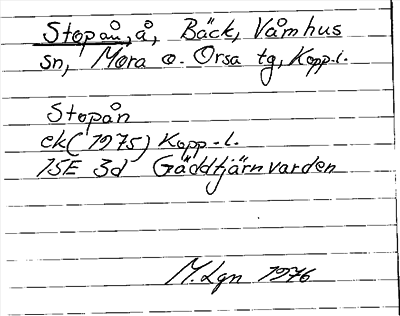 Stopån, å, Bäck, Våmhus
sn, Mora o. Orsa tg, Kopp.l.
Stopån
ek(1975) Kopp.l.
15E 3d Gäddtjärnvarden
M.Lgn 1976